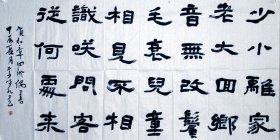 少小離家
老大囬鄉
音無改鬢
毛衰兒童
相見不相
識咲問客
從何處來
賀知章回鄉偶書